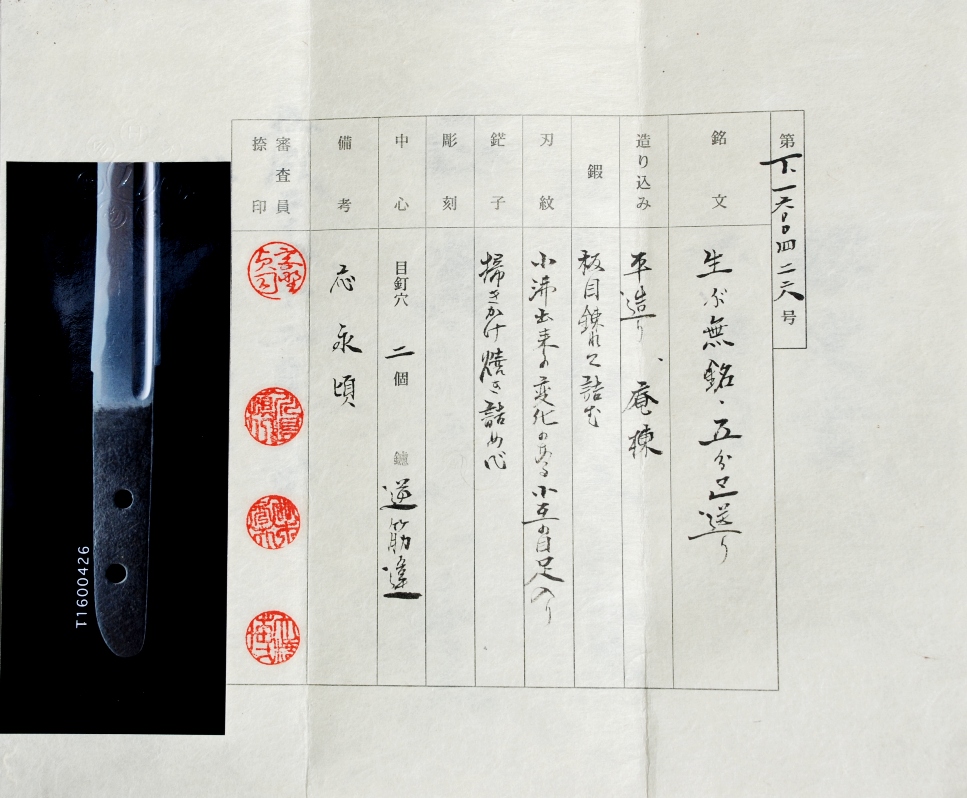 第下一六〇〇四二六号
銘文
生ぶ無銘、五分程送り
造り込み
平造り、庵棟
鍜
板目錬れて詰む
刃紋
小沸出来の変化のある小互の目足入り
鋩子
掃きかけ焼き詰め心
彫刻
中心
目釘穴 二個 鑢 逆筋違
備考
応永頃
審査員
捺印
T1600426